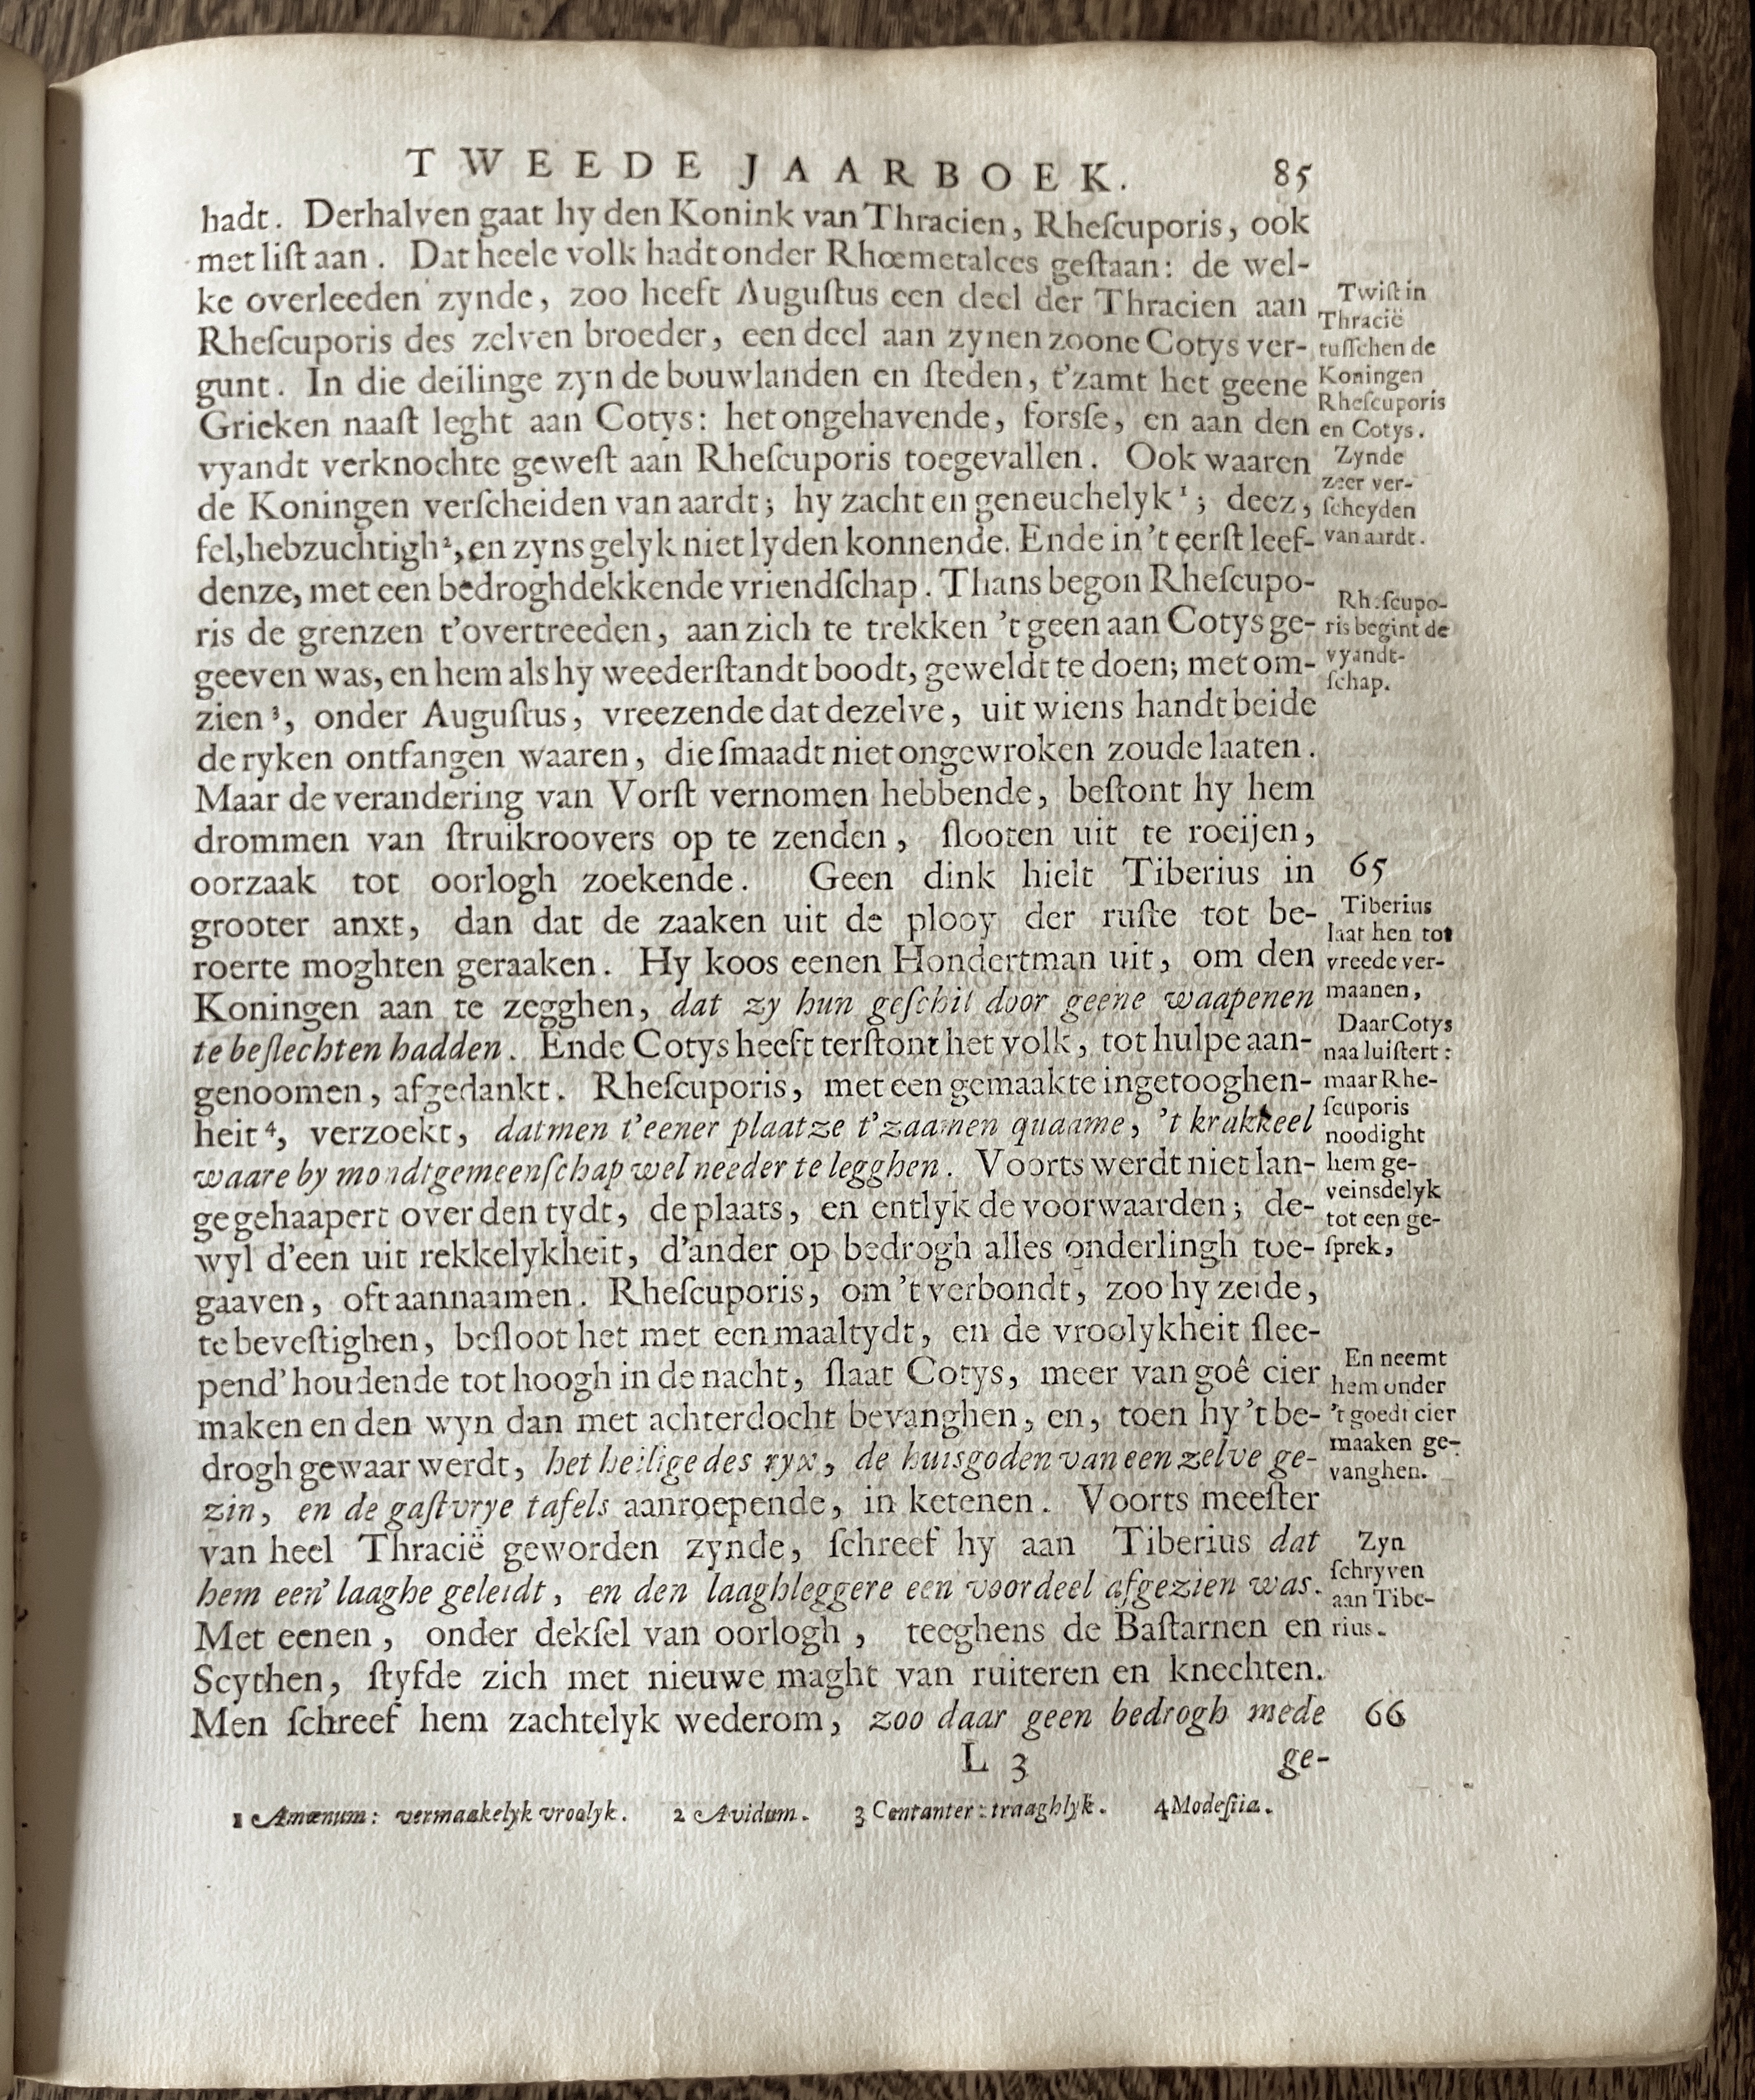 TWEEDE JAARBOEK. 85
hadt. Derhalven gaat hy den Konink van Thracien, Rheſcuporis, ook
met liſt aan. Dat heele volk hadt onder Rhœmetalces geſtaan: de wel-
ke overleeden zynde, zoo heeft Auguſtus een deel der Thracien aan
Rheſcuporis des zelven broeder, een deel aan zynen zoone Cotys ver-
gunt. In die deilinge zyn de bouwlanden en ſteden, t'zamt het geene
Grieken naaſt leght aan Cotys: het ongehavende, forsſe, en aan den
vyandt verknochte geweſt aan Rheſcuporis toegevallen. Ook waaren
de Koningen verſcheiden van aardt; hy zacht en geneuchelyk¹; deez,
fel, hebzuchtigh², en zyns gelyk niet lyden konnende. Ende in 't eerſt leef-
denze, met een bedroghdekkende vriendſchap. Thans begon Rheſcupo-
ris de grenzen t'overtreeden, aan zich te trekken 't geen aan Cotys ge-
geeven was, en hem als hy weederſtandt boodt, geweldt te doen; met om-
zien³, onder Auguſtus, vreezende dat dezelve, uit wiens handt beide
de ryken ontfangen waaren, die ſmaadt niet ongewroken zoude laaten.
Maar de verandering van Vorſt vernomen hebbende, beſtont hy hem
drommen van ſtruikroovers op te zenden, ſlooten uit te roeijen,
oorzaak tot oorlogh zoekende. Geen dink hielt Tiberius in
grooter anxt, dan dat de zaaken uit de plooy der ruſte tot be-
roerte moghten geraaken. Hy koos eenen Hondertman uit, om den
Koningen aan te zegghen, dat zy hun geſchil door geene waapenen
te beſlechten hadden. Ende Cotys heeft terſtont het volk, tot hulpe aan-
genoomen, afgedankt. Rheſcuporis, met een gemaakte ingetooghen-
heit⁴, verzoekt, datmen t'eener plaatze t'zaamen quaame, 't krakkeel
waare by mondtgemeenſchap wel needer te legghen. Voorts werdt niet lan-
ge gehaapert over den tydt, de plaats, en entlyk de voorwaarden; de-
wyl d'een uit rekkelykheit, d'ander op bedrogh alles onderlingh toe-
gaaven, oft aannaamen. Rheſcuporis, om 't verbondt, zoo hy zeide,
te beveſtighen, beſloot het met een maaltydt, en de vroolykheit ſlee-
pend' houdende tot hoogh in de nacht, ſlaat Cotys, meer van goê cier
maken en den wyn dan met achterdocht bevanghen, en, toen hy 't be-
drogh gewaar werdt, het heilige des ryx, de huisgoden van een zelve ge-
zin, en de gaſtvrye tafels aanroepende, in ketenen. Voorts meeſter
van heel Thracië geworden zynde, ſchreef hy aan Tiberius dat
hem een' laaghe geleidt, en den laaghleggere een voordeel afgezien was.
Met eenen, onder dekſel van oorlogh, teeghens de Baſtarnen en
Scythen, ſtyfde zich met nieuwe maght van ruiteren en knechten.
Men ſchreef hem zachtelyk wederom, zoo daar geen bedrogh mede
L 3 ge-
1 Amœnum: vermaakelyk vroolyk. 2 Avidum. 3 Contanter: traaghlyk. 4 Modeſtia.
Twiſt in
Thracië
tuſſchen de
Koningen
Rheſcuporis
en Cotys.
Zynde
zeer ver-
ſcheyden
van aardt.
Rheſcupo-
ris begint de
vyandt-
ſchap.
65
Tiberius
laat hen tot
vreede ver-
maanen,
Daar Cotys
naa luiſtert:
maar Rhe-
ſcuporis
noodight
hem ge-
veinsdelyk
tot een ge-
ſprek,
En neemt
hem onder
't goedt cier
maaken ge-
vanghen.
Zyn
ſchryven
aan Tibe-
rius.
66